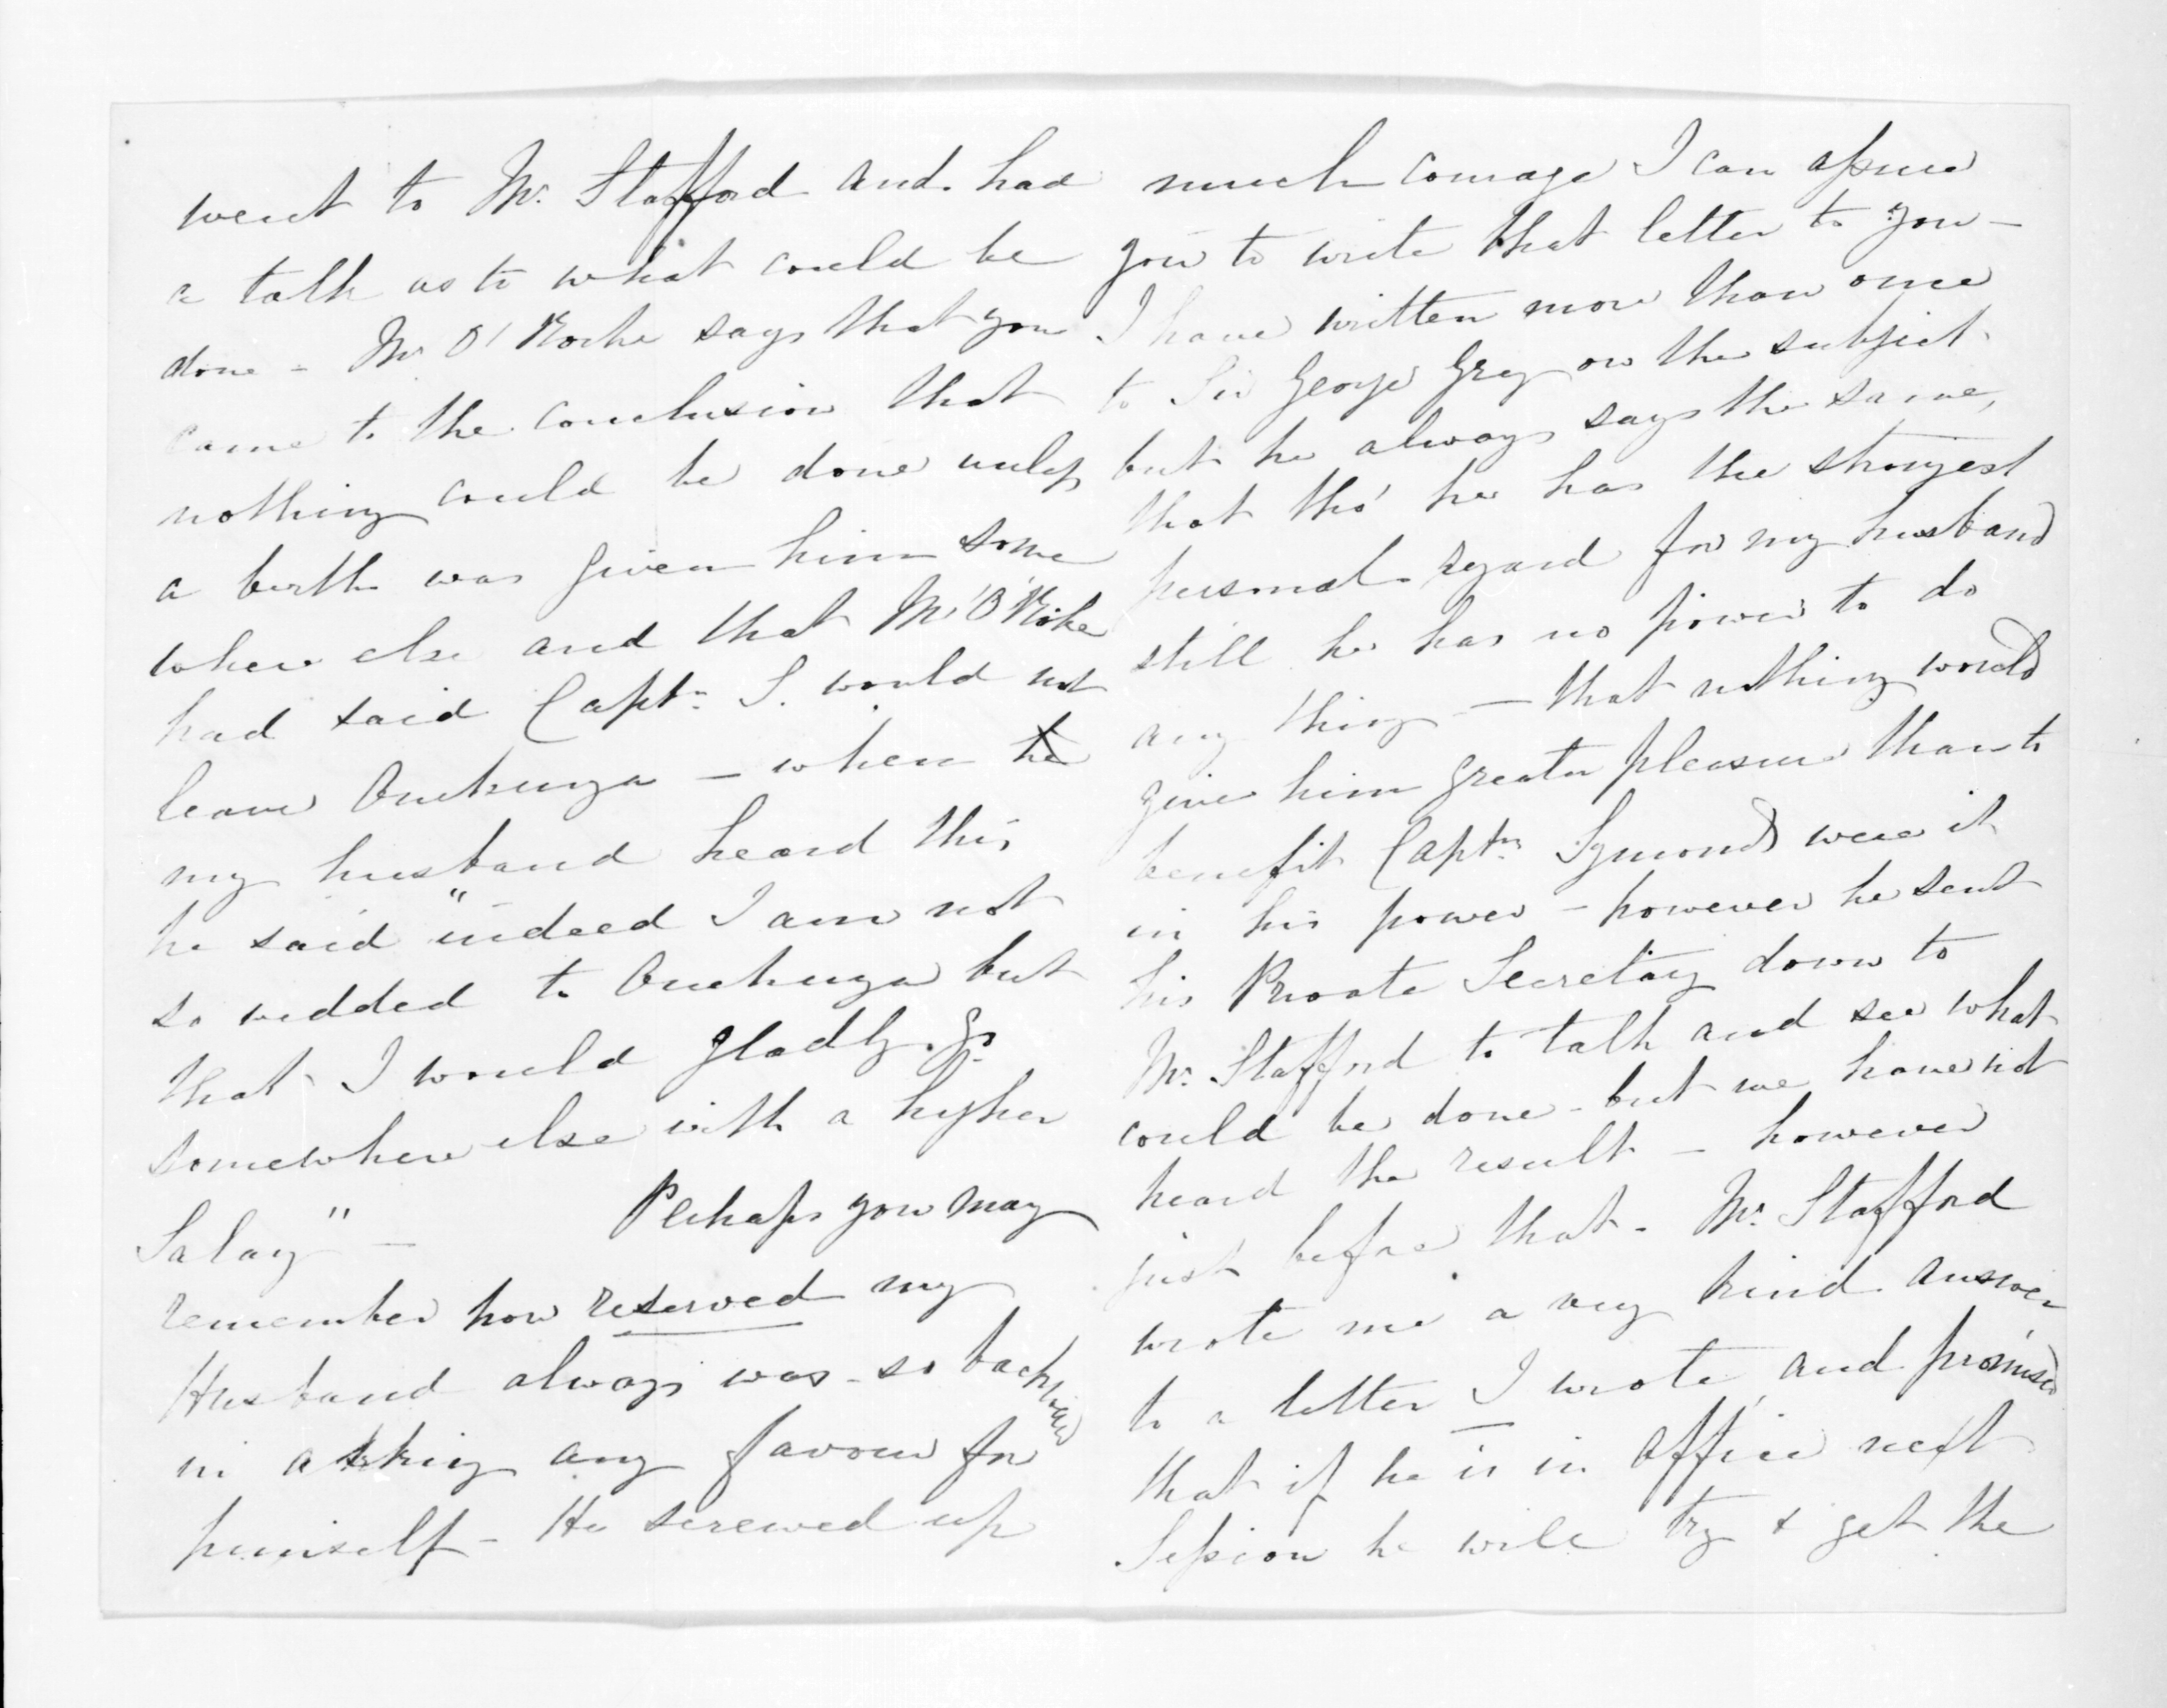 went to Mr. Stafford and had
a talk as to what could be
done - Mr O'Rorke says that you
came to the conclusion that
nothing could be done unless
a birth was given him some
where else and that Mr O'Rorke
had said Captn. S. would not
leave Onehunga - when he
my husband heard this
he said "indeed I am not
so wedded to Onehunga but
that I would gladly go
somewhere else with a higher
Salary" - Perhaps you may
remember how reserved my
Husband always was - so backward
in asking any favour for
himself - He screwed up
much courage I can assure
you to write that letter to you -
I have written more than once
to Sir George Grey on the subject
but he always says the same,
that tho' he has the strongest
personal regard for my husband
still he has no power to do
any thing - that nothing would
give him greater pleasure than to
benefit Captn. Symonds were it
in his power - however he sent
his Private Secretary down to
Mr. Stafford to talk and see what
could be done - but we have not
heard the result - however
just before that - Mr. Stafford
wrote me a very kind answer
to a letter I wrote and promised
that if he is in office next
Session he will try & get the